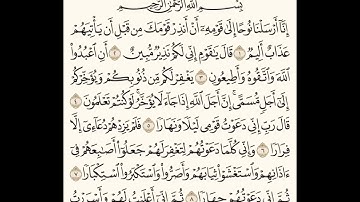 بِسْمِ اللَّهِ الرَّحْمَٰنِ الرَّحِيمِ
إِنَّا أَرْسَلْنَا نُوحًا إِلَىٰ قَوْمِهِ أَنْ أَنذِرْ قَوْمَكَ مِن قَبْلِ أَن يَأْتِيَهُمْ
عَذَابٌ أَلِيمٌ ١ قَالَ يَا قَوْمِ إِنِّي لَكُمْ نَذِيرٌ مُّبِينٌ ٢ أَنِ اعْبُدُوا
اللَّهَ وَاتَّقُوهُ وَأَطِيعُونِ ٣ يَغْفِرْ لَكُم مِّن ذُنُوبِكُمْ وَيُؤَخِّرْكُمْ
إِلَىٰ أَجَلٍ مُّسَمًّى إِنَّ أَجَلَ اللَّهِ إِذَا جَاءَ لَا يُؤَخَّرُ لَوْ كُنتُمْ تَعْلَمُونَ ٤
قَالَ رَبِّ إِنِّي دَعَوْتُ قَوْمِي لَيْلًا وَنَهَارًا ٥ فَلَمْ يَزِدْهُمْ دُعَائِي إِلَّا
فِرَارًا ٦ وَإِنِّي كُلَّمَا دَعَوْتُهُمْ لِتَغْفِرَ لَهُمْ جَعَلُوا أَصَابِعَهُمْ فِي
آذَانِهِمْ وَاسْتَغْشَوْا ثِيَابَهُمْ وَأَصَرُّوا وَاسْتَكْبَرُوا اسْتِكْبَارًا ٧
ثُمَّ إِنِّي دَعَوْتُهُمْ جِهَارًا ٨ ثُمَّ إِنِّي أَعْلَنتُ لَهُمْ وَأَسْرَرْتُ